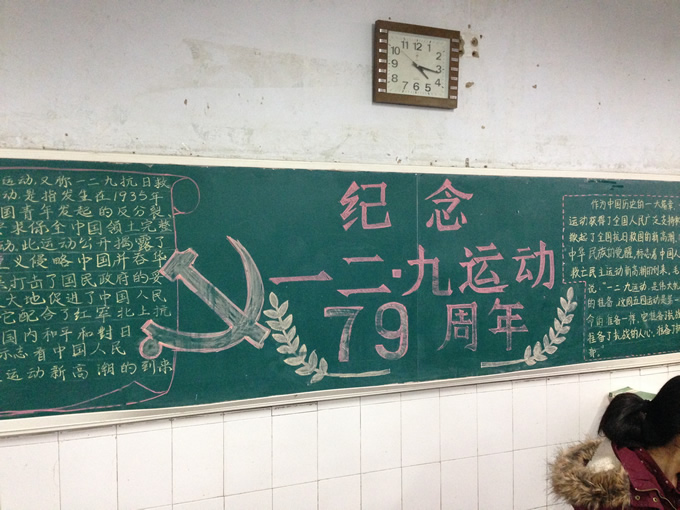 12
3
运动,又称一二九抗日救
动是指发生在1935年
国青年发起的反分裂
要求保全中国领土完整
动.此运动公开揭露了
主义侵略中国并吞华
打击了国民政府的妥
大地促进了中国人民
它配合了红军北上抗
国内和平和对日
标志着中国人民
运动新高潮的到来
纪念
一二·九运动
79周年
作为中国历史的一大篇章
运动获得了全国人民广泛支持
掀起了全国抗日救国的新高潮
中华民族的觉醒,标志着中国人
救亡民主运动新高潮的到来.毛
说:"一二九运动,是伟大
的准备,这同五四运动是第一
准备一样.它准备了抗战
准备了抗战的人心,准备了